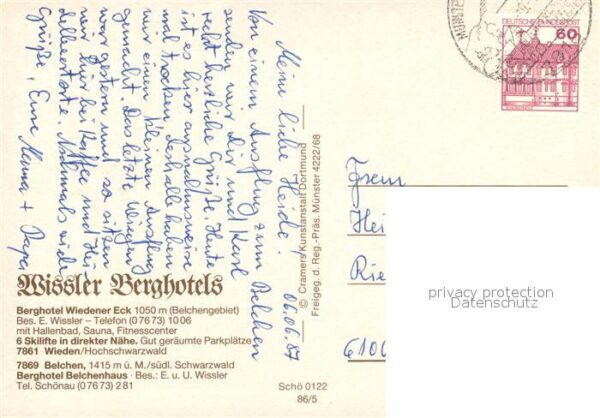 Meine liebe Heide! 06.06.87
Von einem Ausflug zum Belchen
senden wir Dir und Karl
recht herzliche Grüße. Heute
ist es hier ausnahmsweise
mal trocken, deshalb haben
wir einen kleinen Ausflug
gemacht. Das letzte Wiegen
war gestern und so sitzen
wir hier bei Kaffee und Hei-
delbeertorte. Nochmals viele
Grüße, Eure Mama + Papa
Wissler Berghotels
Berghotel Wiedener Eck 1050 m (Belchengebiet)
Bes. E. Wissler – Telefon (0 76 73) 10 06
mit Hallenbad, Sauna, Fitnesscenter
6 Skilifte in direkter Nähe. Gut geräumte Parkplätze
7861 Wieden/Hochschwarzwald
7869 Belchen, 1415 m ü. M./südl. Schwarzwald
Berghotel Belchenhaus · Bes.: E. u. U. Wissler
Tel. Schönau (0 76 73) 2 81
Schö 0122
86/5
© Cramers Kunstanstalt Dortmund
Freigeg. d. Reg.-Präs. Münster 4222/68
MÜNSTE
DEUTSCHE BUNDESPOST
60
Frau
Hei
Rie
6100
privacy protection
Datenschutz